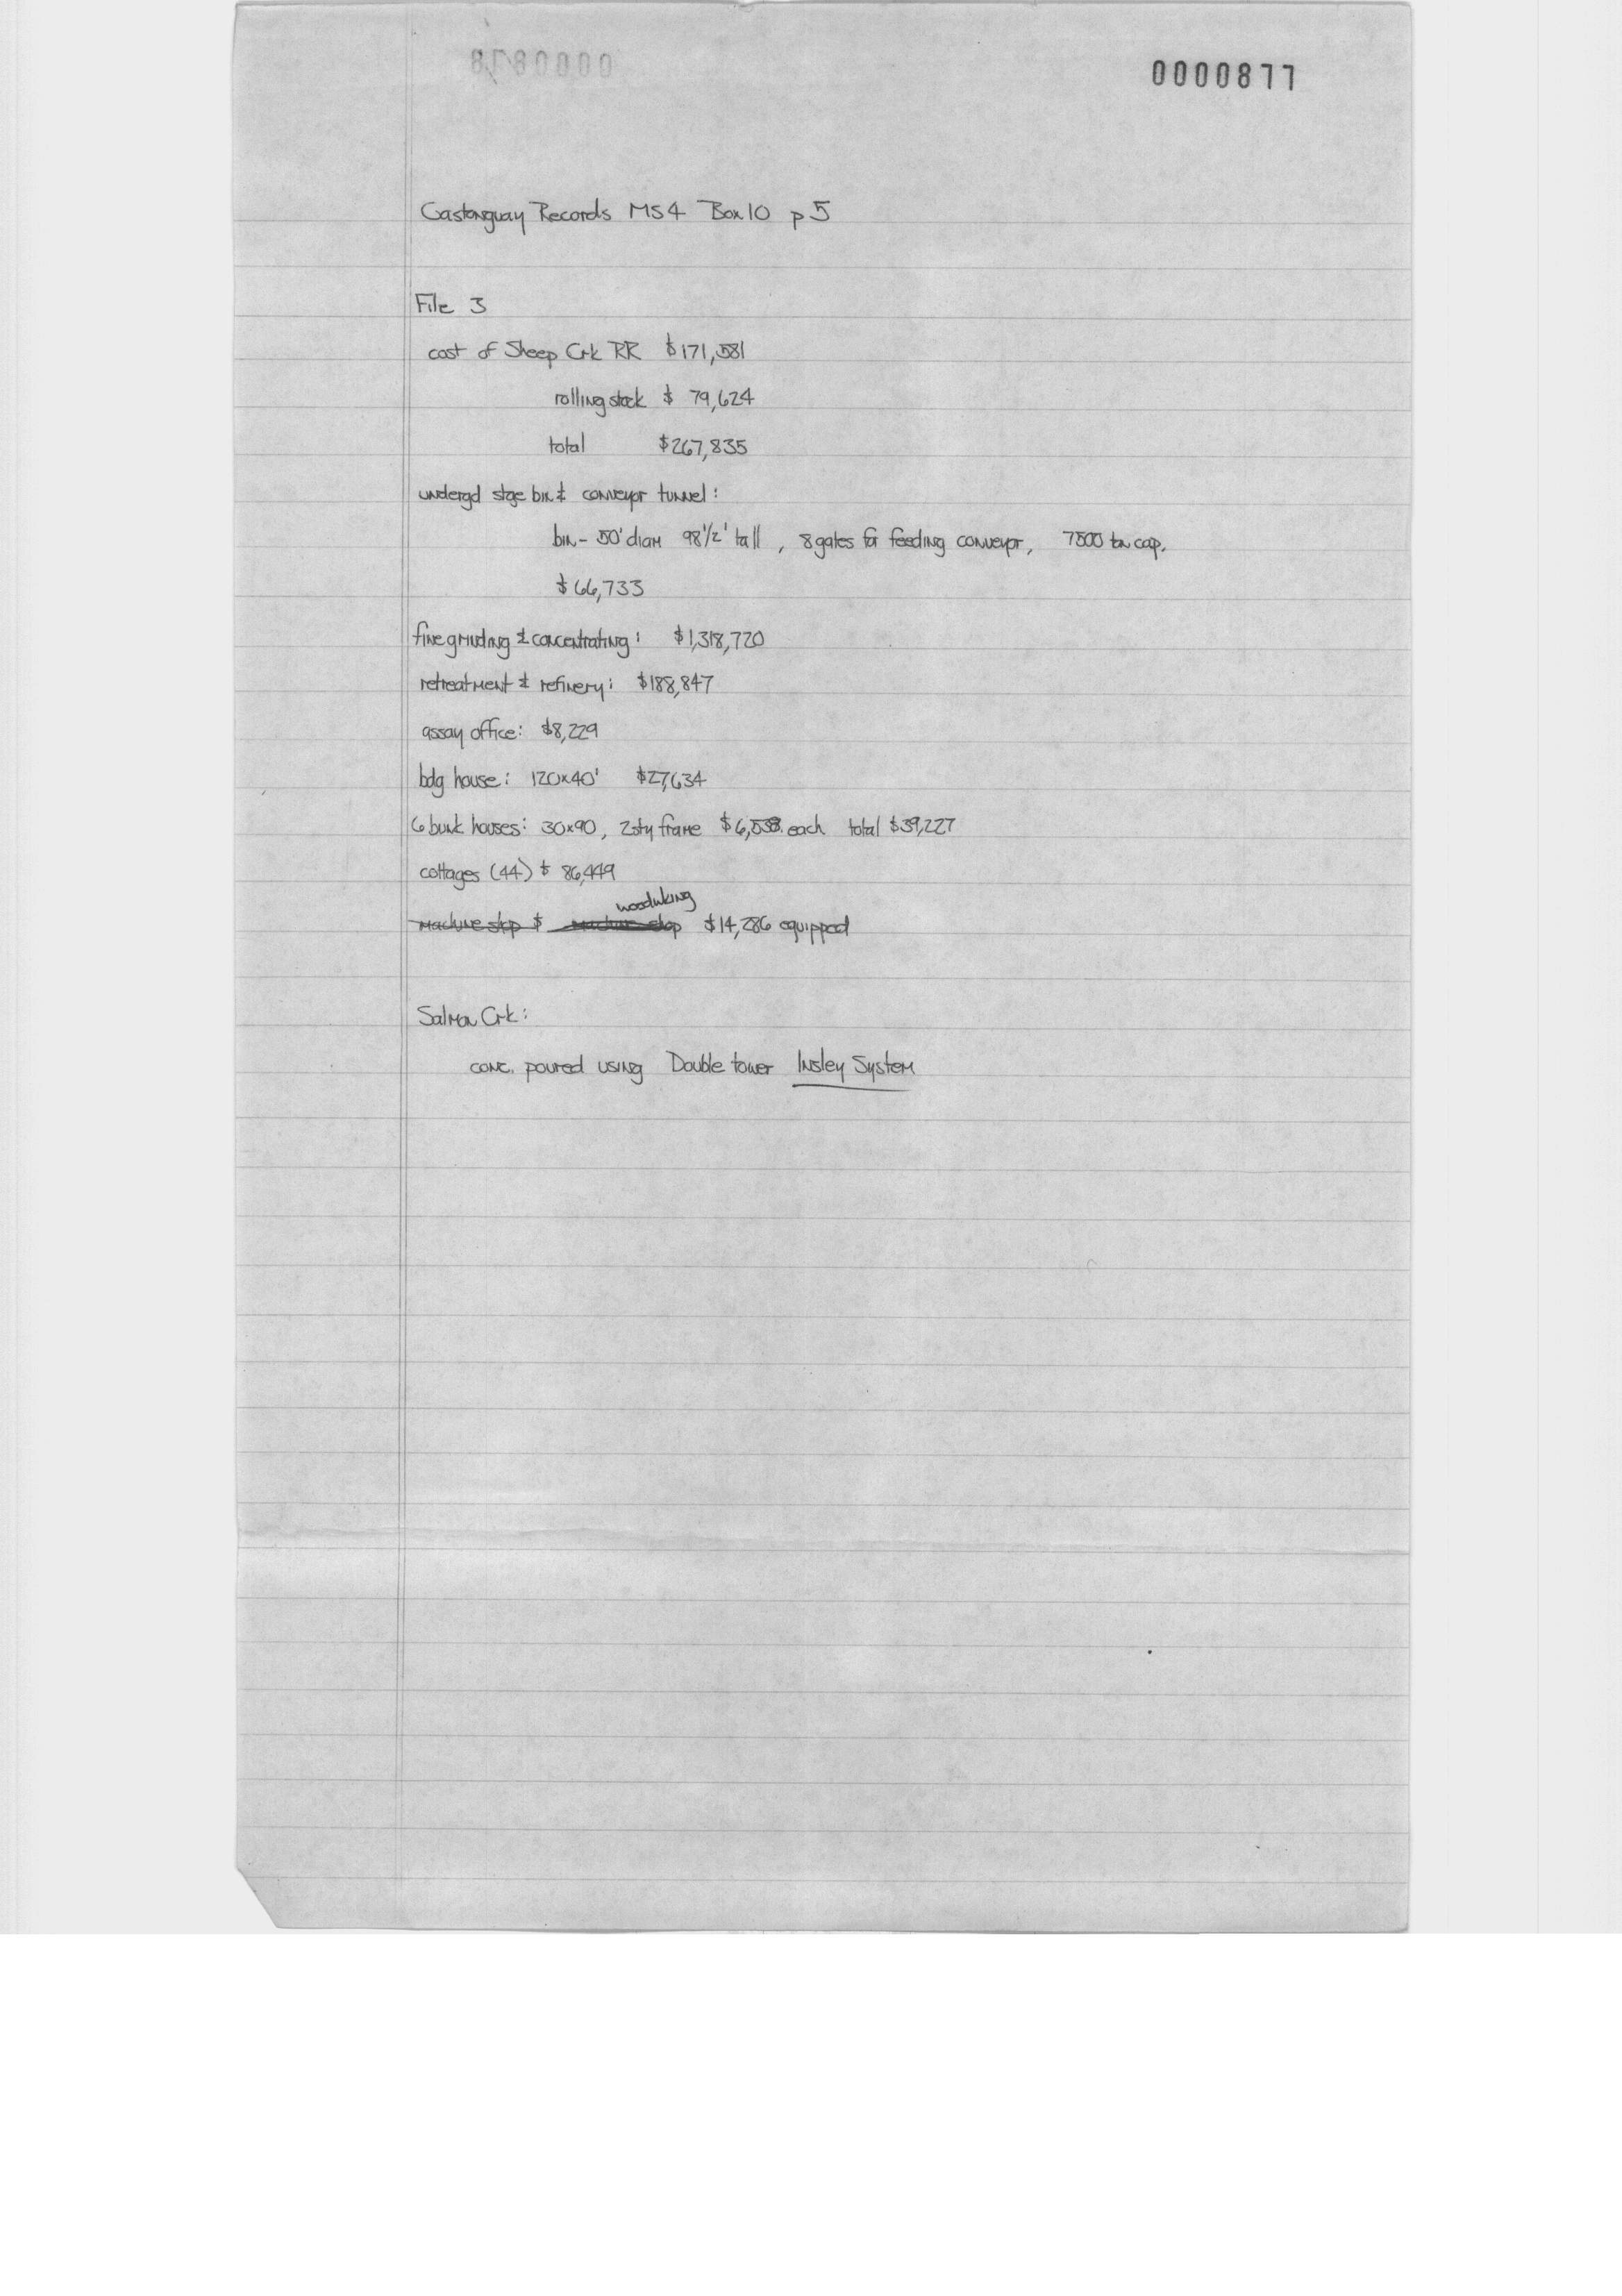 0000877
Castonguay Records MS4 Box 10 p 5
File 3
cost of Sheep Crk RR $171,581
rolling stock $ 79,624
total $267,835
undergd stge bin & conveyor tunnel:
bin - 50' diam 98 1/2' tall, 8 gates for feeding conveyor, 7500 ton cap.
$66,733
fine grinding & concentrating: $1,318,720
retreatment & refinery: $188,847
assay office: $8,229
bdg house: 120x40' $27,634
6 bunk houses: 30x90, 2sty frame $6,538 each total $39,227
cottages (44) $ 86,449
woodwking
machine shop $ machine shop $14,286 equipped
Salmon Crk:
conc. poured using Double tower Insley System